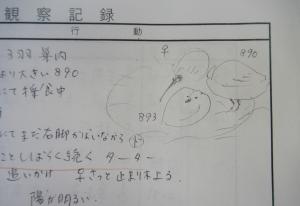 観察記録
行動
3羽巣内
より大きい890
にて採食中
にてまだ右脚かばいながら
ことしばらく続く ターター
追いかけ 早さっと止まり木上る
陽が明るい.
♀
890
893